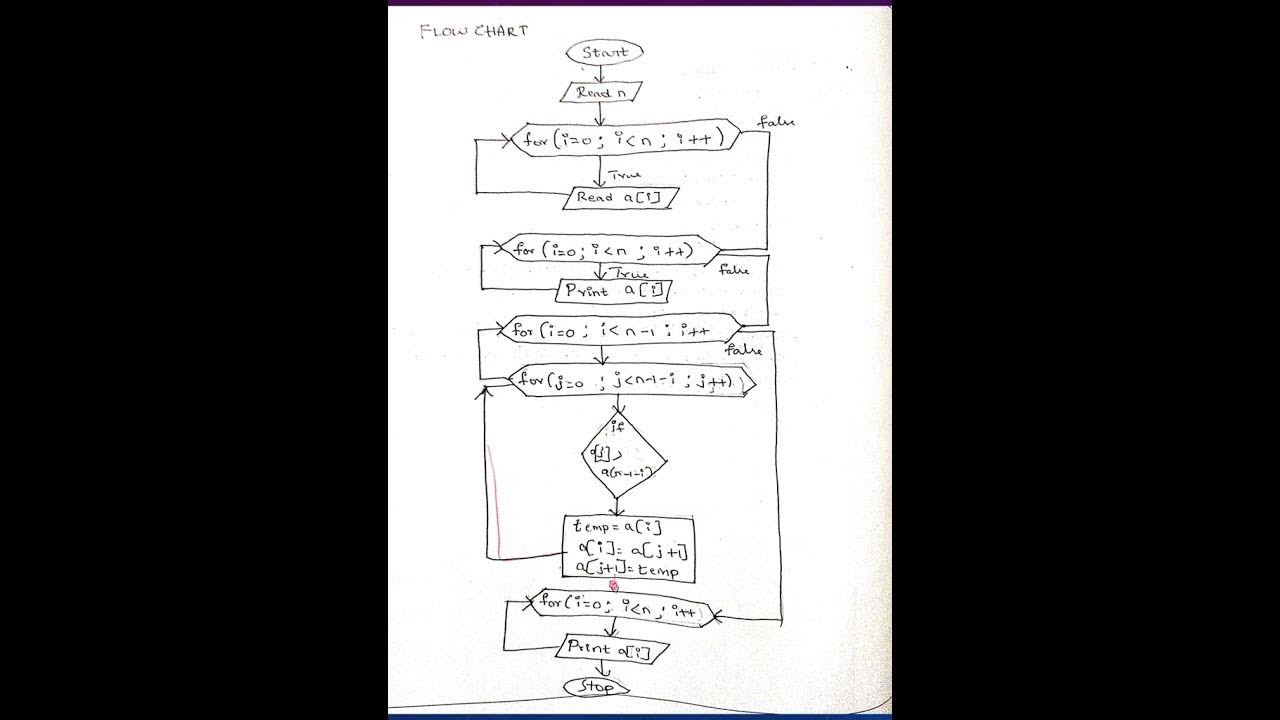 FLOW CHART
Start
Read n
for (i=0; i<n; i++)
false
True
Read a[i]
for (i=0; i<n; i++)
false
True
Print a[i]
for (i=0; i<n-1; i++
false
for (j=0; j<n-1-i; j++)
if
a[j]>
temp=a[i]
a[i]=a[j+1]
a[j+1]=temp
for(i=0; i<n; i++
Print a[i]
Stop